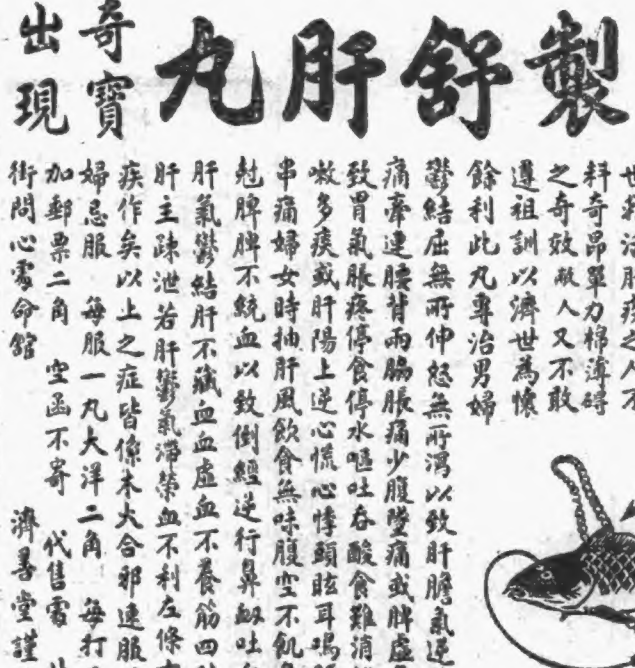 製舒肝丸
奇寶
出現
世救治肝病之人不
料奇昂單力棉薄碍
之奇效敝人又不敢
遵祖訓以濟世為懷
餘利此丸專治男婦
鬱結屈無所伸怒無所瀉以致肝膽氣逆
痛牽連腰背兩脇脹痛少腹墜痛或脾虛
致胃氣脹疼停食停水嘔吐吞酸食難消
嗽多痰或肝陽上逆心慌心悸頭眩耳鳴
串痛婦女時抽肝風飲食無味腹空不飢
尅脾脾不統血以致倒經逆行鼻衂吐
肝氣鬱結肝不藏血血虛血不養筋四
肝主疎泄若肝鬱氣滯榮血不利左條
疾作矣以上之症皆係木火合邪速服
婦忌服 每服一丸大洋二角 每打
加郵票二角 空函不寄 代售處
街問心處命館 濟善堂謹